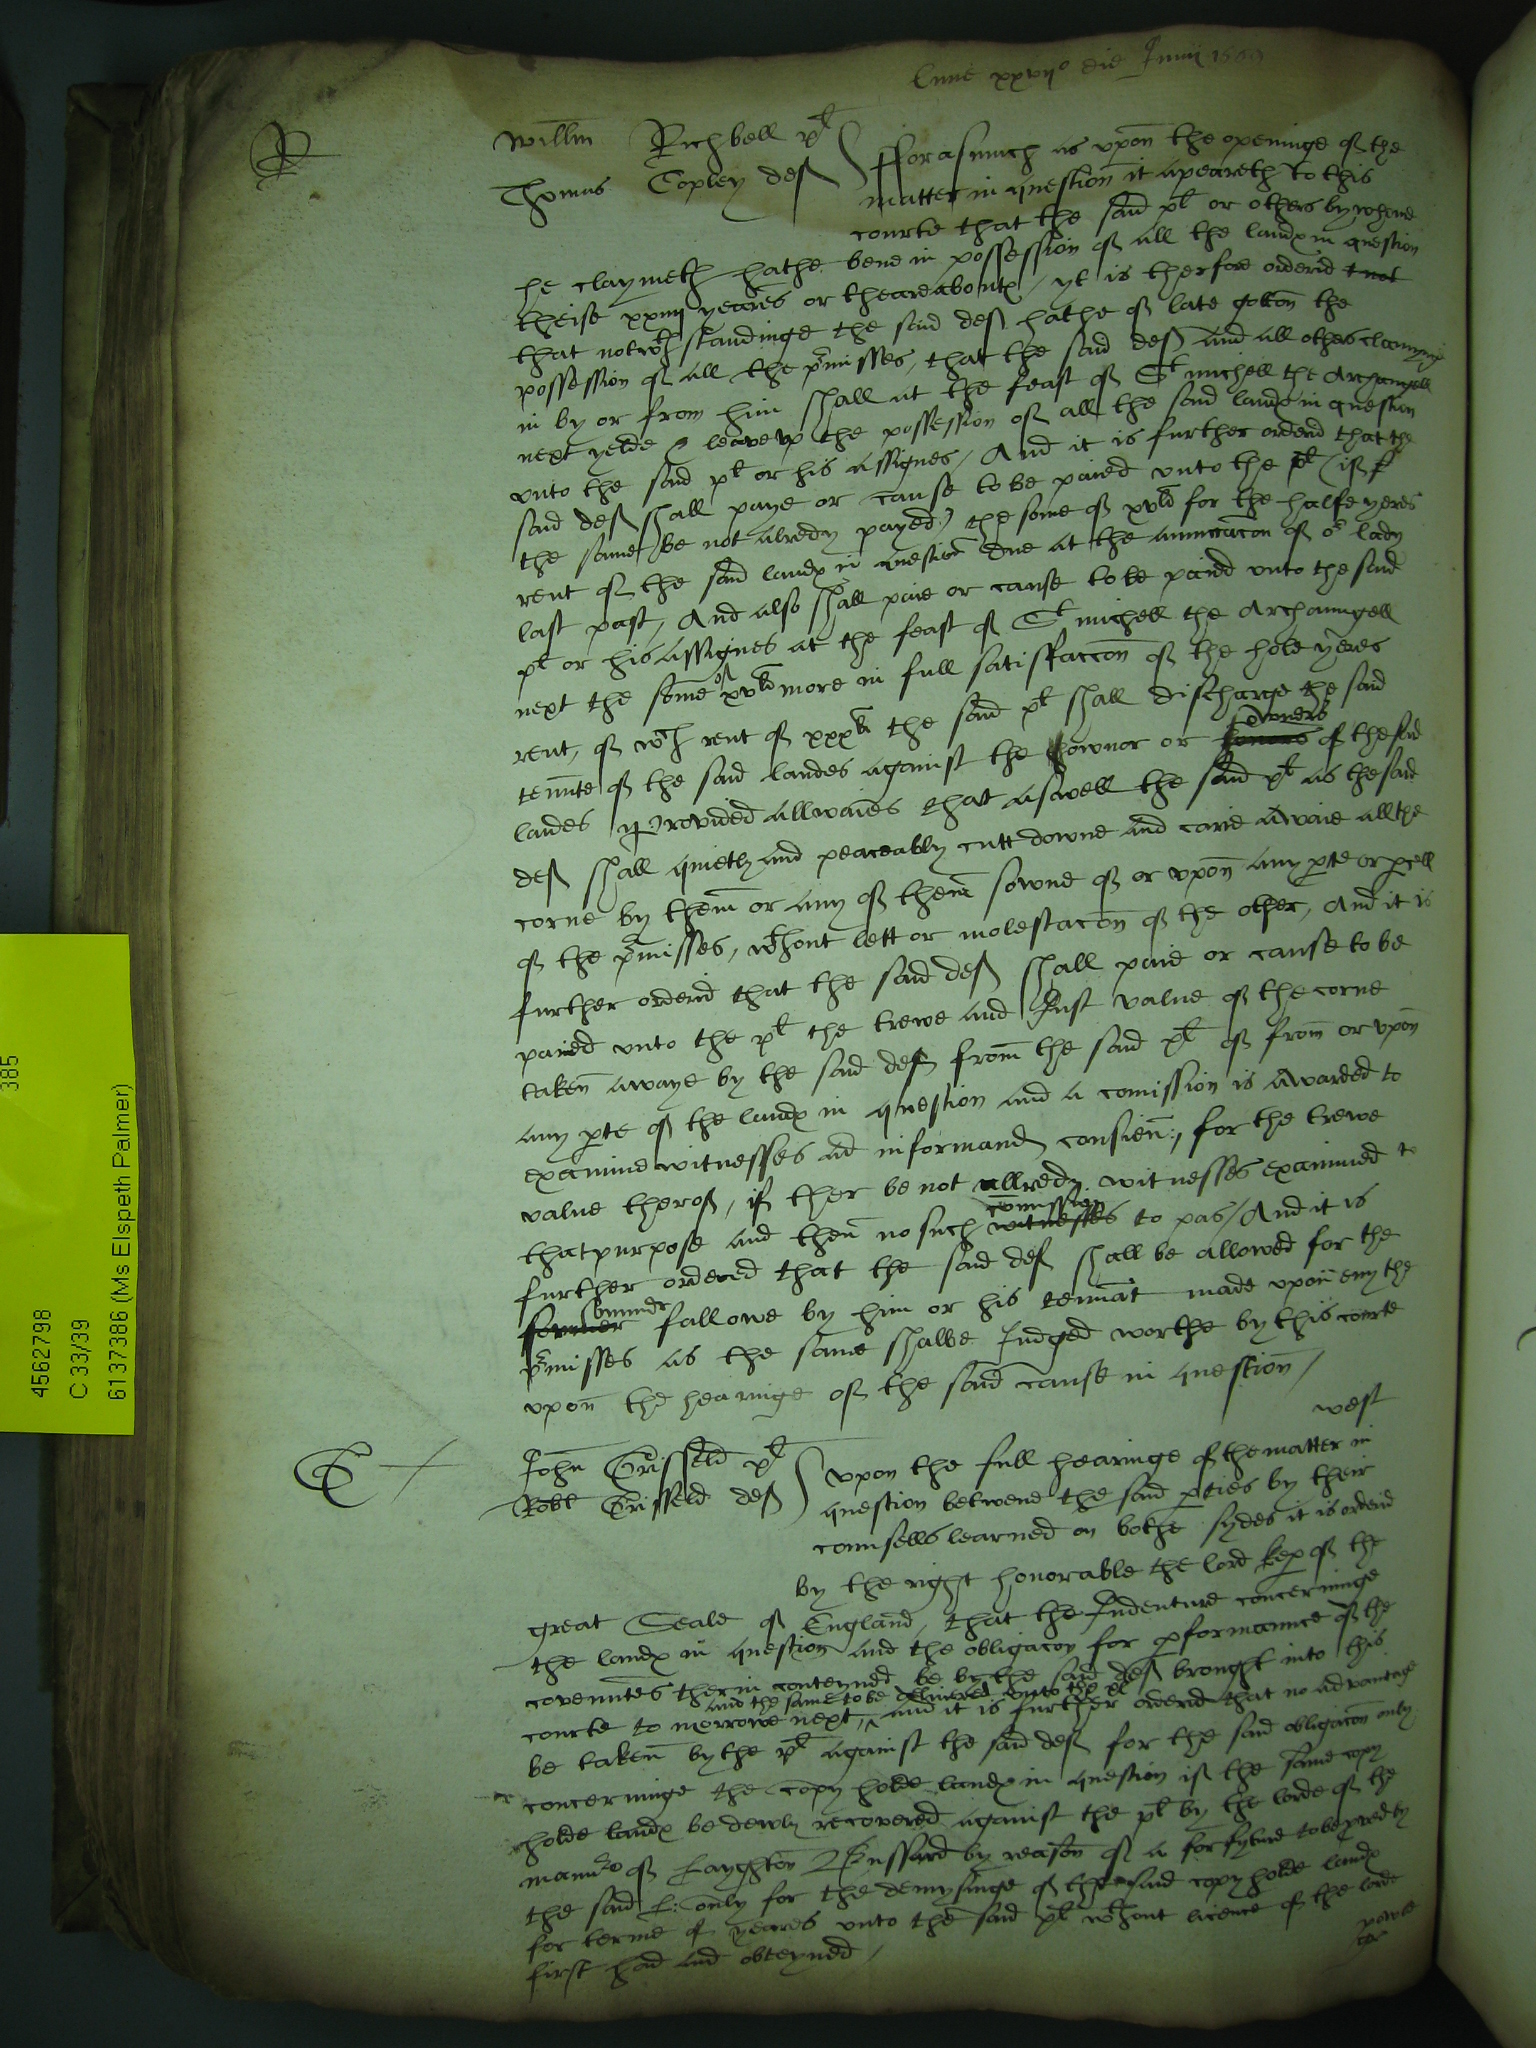 Lune xxvijº die Junij 1569
R
Willm Richbell pl
Thomas Copley def
fforasmuch as vpon the openinge of the
matter in question it apeareth to this
courte that the said pl or others by whome
he claymeth hathe bene in possession of all the landx in question
theise xxiiij yeares or theareaboutx / yt is therfore orderid
that notwthstandinge the said def hathe of late gotton the
possession of all the pmisses, that the said def and all others clayminge
in by or from him shall at the feast of St michell the Archangell
next yelde & leave vp the possession of all the said landx in question
vnto the said pl or his assignes / And it is further orderid that the
said def shall paye or cause to be paied vnto the pl (if
the same be not alredy payed) the some of xvli for the halfe yeres
rent of the said landx in question due at the annunciacon of or lady
last past, And also shall paie or cause to be paied vnto the said
pl or his assignes at the feast of St michell the Archaungell
next the some of xvli more in full satisfaccon of the hole yeres
rent, of wch rent of xxxli the said pl shall discharge the said
tennte of the said landes against the owner or owners of the said
landes Provided allwaies that aswell the said pl as the said
def shall quietly and peaceably cutt downe and carie awaie all the
corne by them or any of them sowne of or vpon any pte or pcell
of the pmisses, wthout lett or molestacon of the other, And it is
further orderid that the said def shall paie or cause to be
paied vnto the pl the trewe and Just value of the corne
taken awaye by the said def from the said pl of from or vpon
any pte of the landx in question and a comission is awarded to
examine witnesses ad informand consien:, for the trewe
value therof, if ther be not allredy witnesses examined to
that purpose and then no such witnesses comission to pas / And it is
further ordered that the said def shall be allowed for the
former fallowe by him or his tennat made vpon eny the
pmisses as the same shalbe Judged worthe by this courte
vpon the hearinge of the said cause in question /
west
G
John Grisseld pl
Robt Grisseld def
vpon the full hearinge of the matter in
question betwene the said pties by their
counsells learned on bothe sydes it is orderid
by the right honorable the lord kep of the
great Seale of England, that the Indenture concerninge
the landx in question and the obligacon for pformaunce of the
covenntes therin conteyned be by the said def brought into this
and the same to be delivered vnto the pl
courte to morrowe next, ^ and it is further orderid that no advantage
be taken by the pl against the said def for the said obligacon only
concerninge the copy holde landx in question if the same copy
holde landx be dewly recovered against the pl by the lorde of the
mannor of Layghton Bussard by reason of a forfyture to be pved by
the said L: only for the demysinge of the said copy holde landx
for terme of yeares vnto the said pl wthout licence of the lorde
first had and obteyned /
powle
4562798
C 33/39
6137386 (Ms Elspeth Palmer)
385